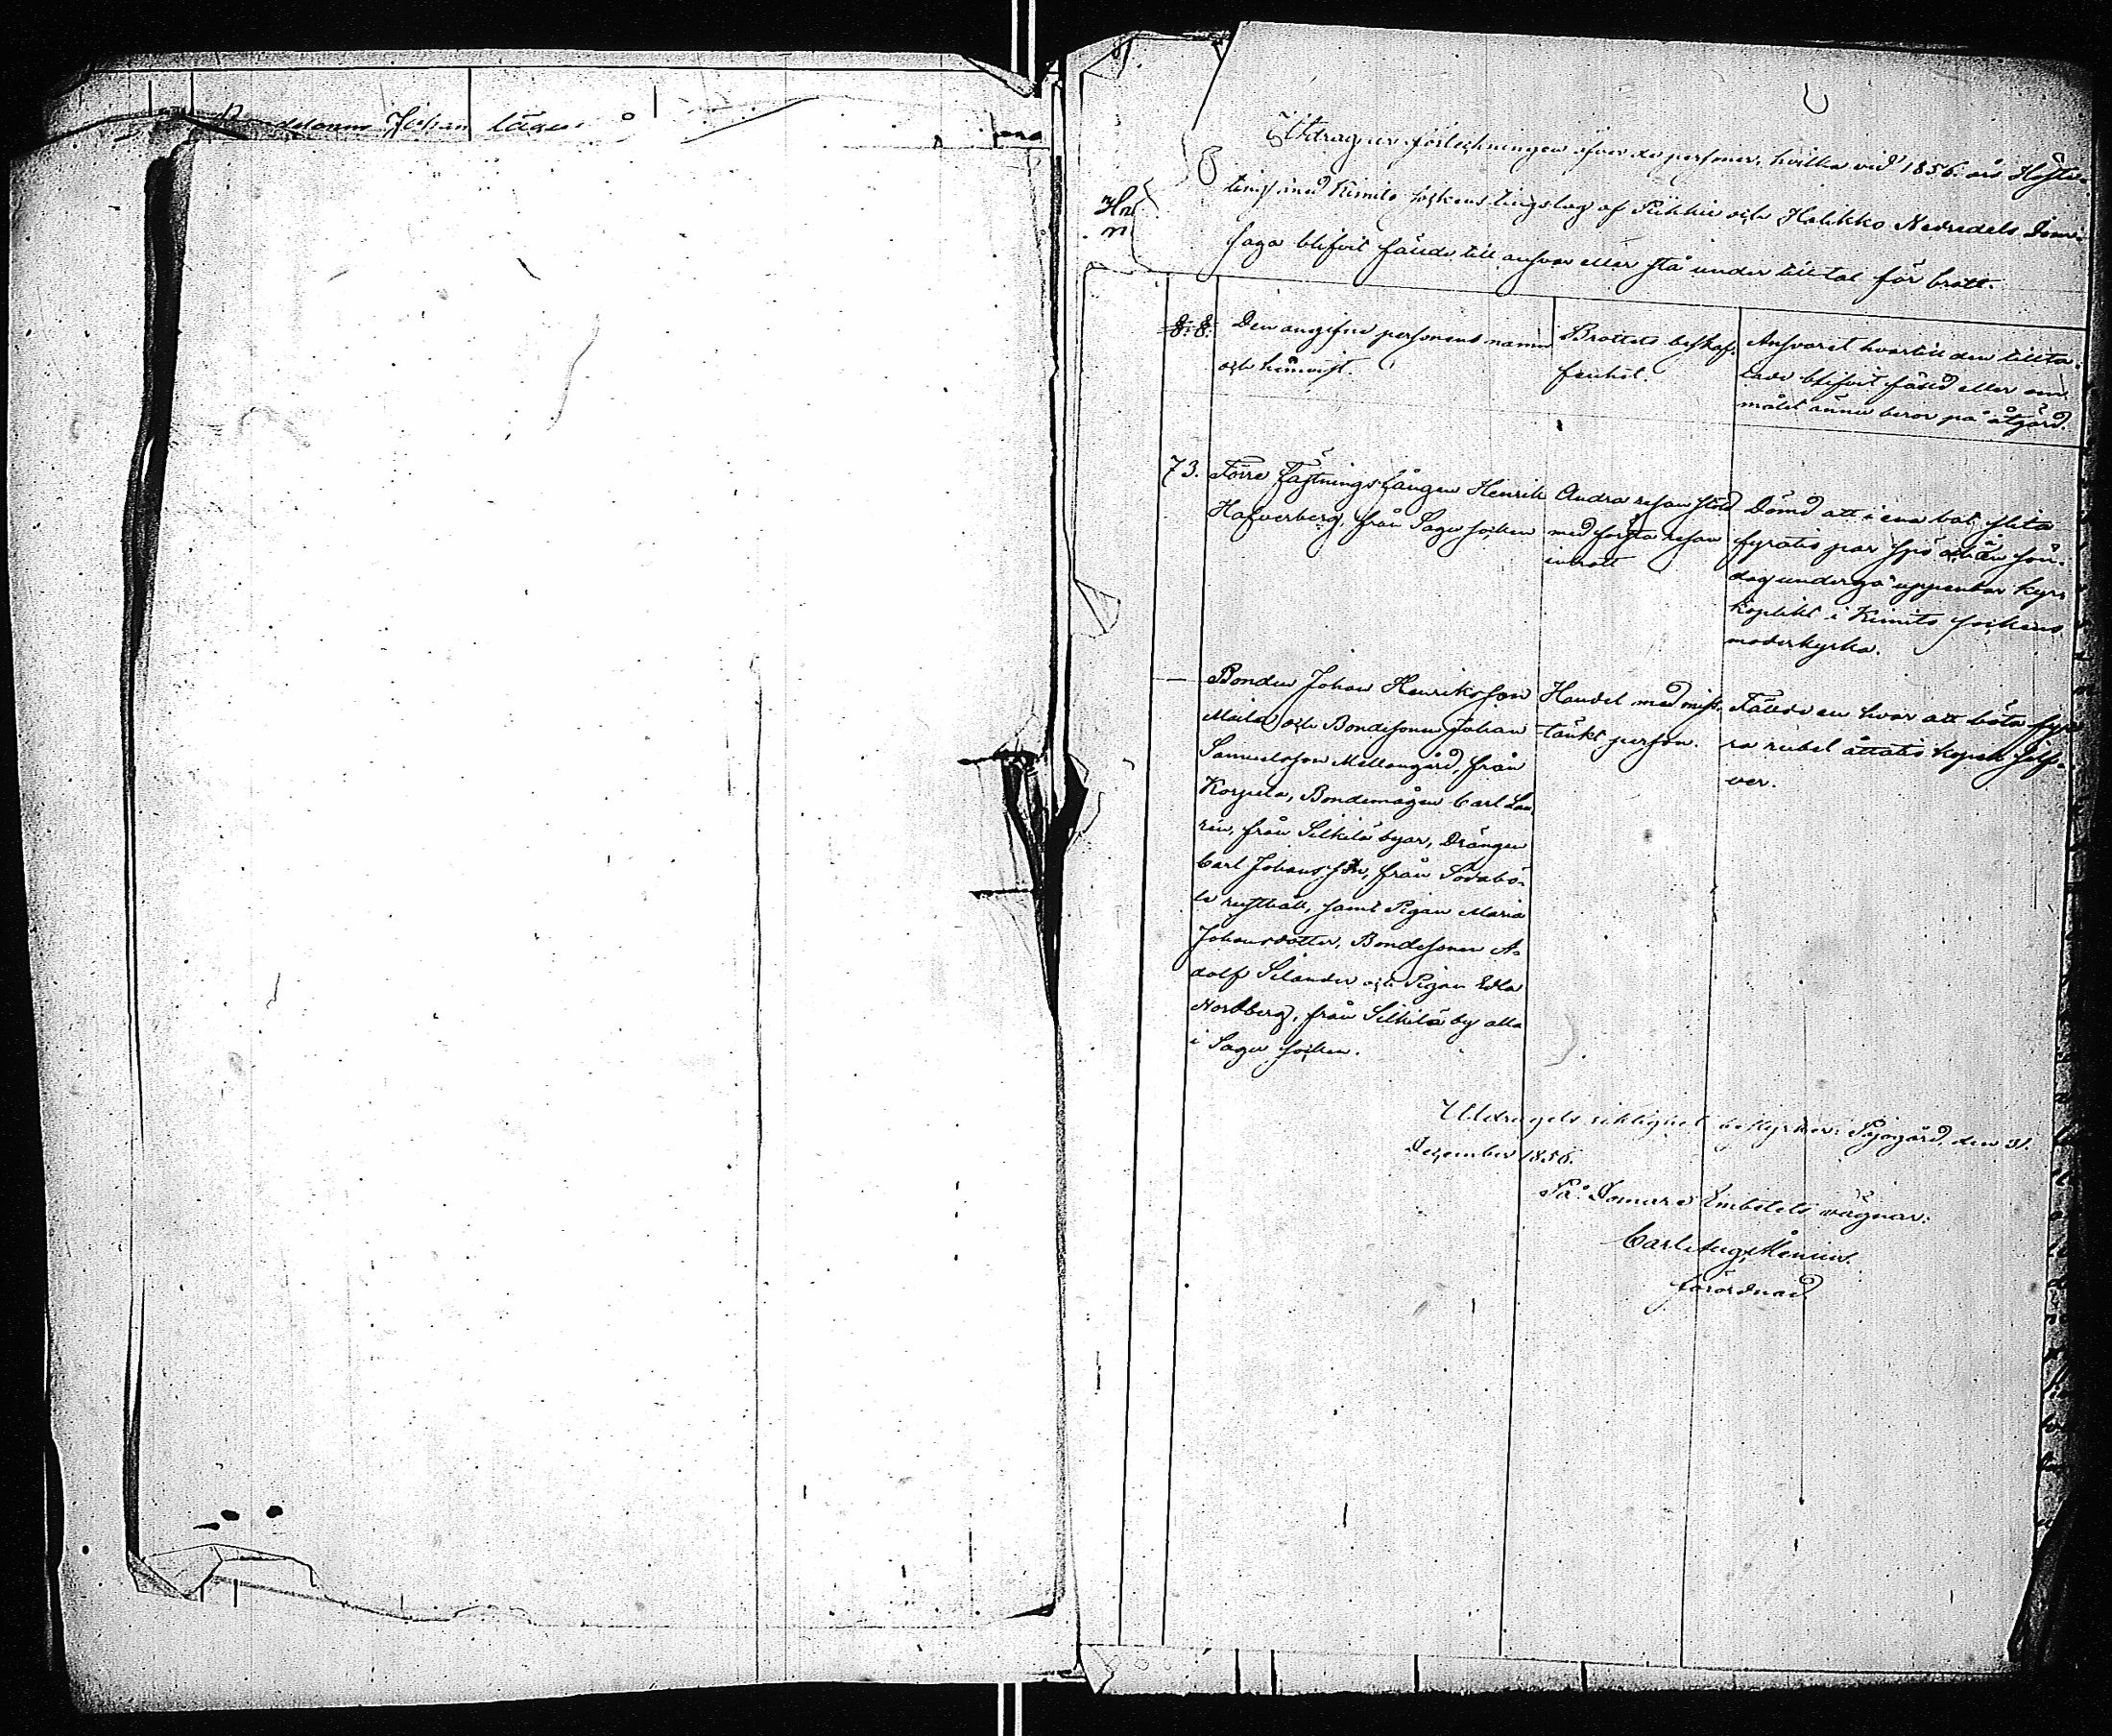 Johan
Utdrag ur förtekningen öfver de personer, hvilka vid 1856 års Höste-
ting med Kimito sokens tingslag af Pikkie och Halikko Nedredels Dom-
saga blifvit fälde till ansvar eller stå under tilltal för brott.
§. §.
Den angifne personens namn
och hemvist.
Brottets beskaf-
fenhet.
Ansvaret hvartill den tillta-
lade blifvit fäld eller om
målet ännu beror på åtgärd.
73. Förre Fästningsfången Henrik
Hafverberg, från Sagu soken
Andra resan stöld
med första resan
inbrott
Dömd att i ena bot slita
fyratio par spö och en sön-
dag undergå uppenbar kyr-
koplikt i Kimito sokens
moderkyrka.
— Bonden Johan Henriksson
Maila och Bondesonen Johan
Samuelsson Mellangård, från
Korpela, Bondemågen Carl Lau-
rén, från Silkilä byar, Drängen
Carl Johansson, från Södabö-
le rusthåll, samt Pigan Maria
Johansdotter, Bondesonen A-
dolf Silander och Pigan Edla
Nordberg, från Silkilä by alla
i Sagu soken.
Handel med miss-
tänkt person.
Fälldes en hvar att böta fy-
ra rubel åttatio kopek silf-
ver.
Utdragets riktighet bestyrker: Pajogård, den 31.
December 1856.
På Domare Embetets vägnar:
Carl Aug. Alenius.
förordnad